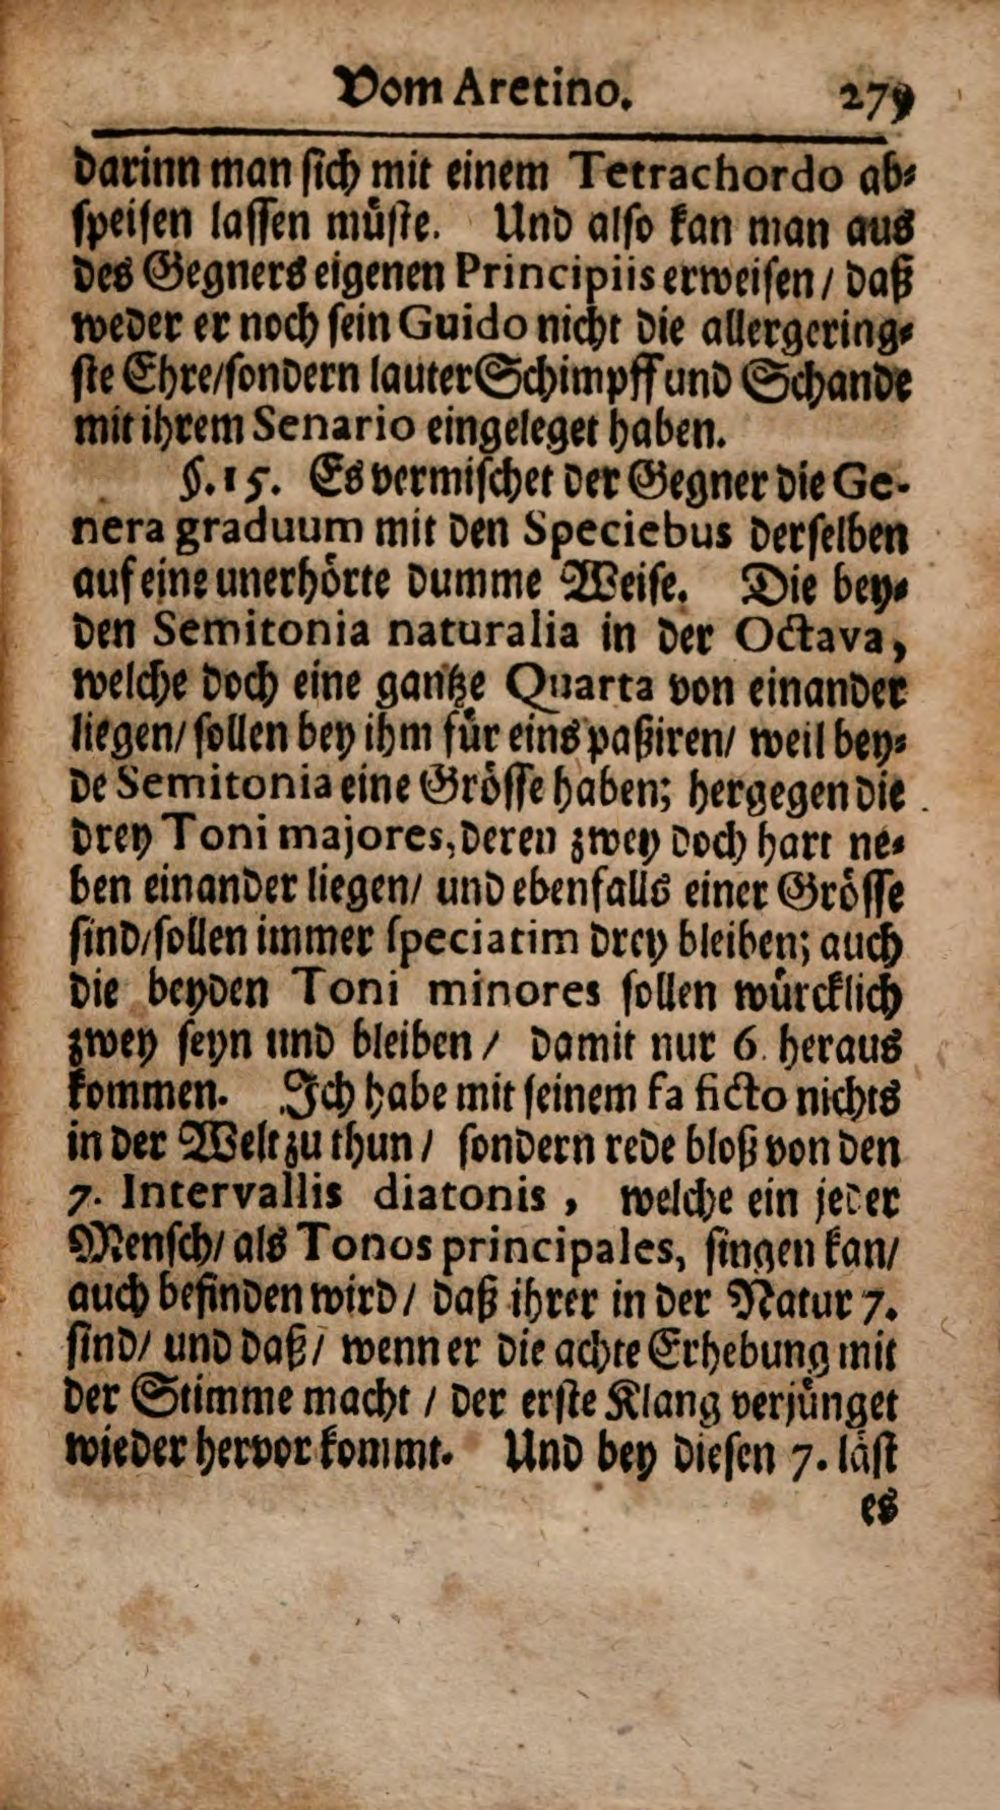 Vom Aretino. 279
darinn man sich mit einem Tetrachordo ab-
speisen lassen müste. Und also kan man aus
des Gegners eigenen Principiis erweisen / daß
weder er noch sein Guido nicht die allergering-
ste Ehre/sondern lauter Schimpff und Schande
mit ihrem Senario eingeleget haben.
§.15. Es vermischet der Gegner die Ge-
nera graduum mit den Speciebus derselben
auf eine unerhörte dumme Weise. Die bey-
den Semitonia naturalia in der Octava,
welche doch eine gantze Quarta von einander
liegen/ sollen bey ihm für eins paßiren/ weil bey-
de Semitonia eine Grösse haben; hergegen die
drey Toni majores, deren zwey doch hart ne-
ben einander liegen/ und ebenfalls einer Grösse
sind/sollen immer speciatim drey bleiben; auch
die beyden Toni minores sollen würcklich
zwey seyn und bleiben / damit nur 6. heraus
kommen. Ich habe mit seinem fa ficto nichts
in der Welt zu thun / sondern rede bloß von den
7. Intervallis diatonis , welche ein jeder
Mensch/ als Tonos principales, singen kan/
auch befinden wird / daß ihrer in der Natur 7.
sind/ und daß / wenn er die achte Erhebung mit
der Stimme macht / der erste Klang verjünget
wieder hervor kommt. Und bey diesen 7. läst
es